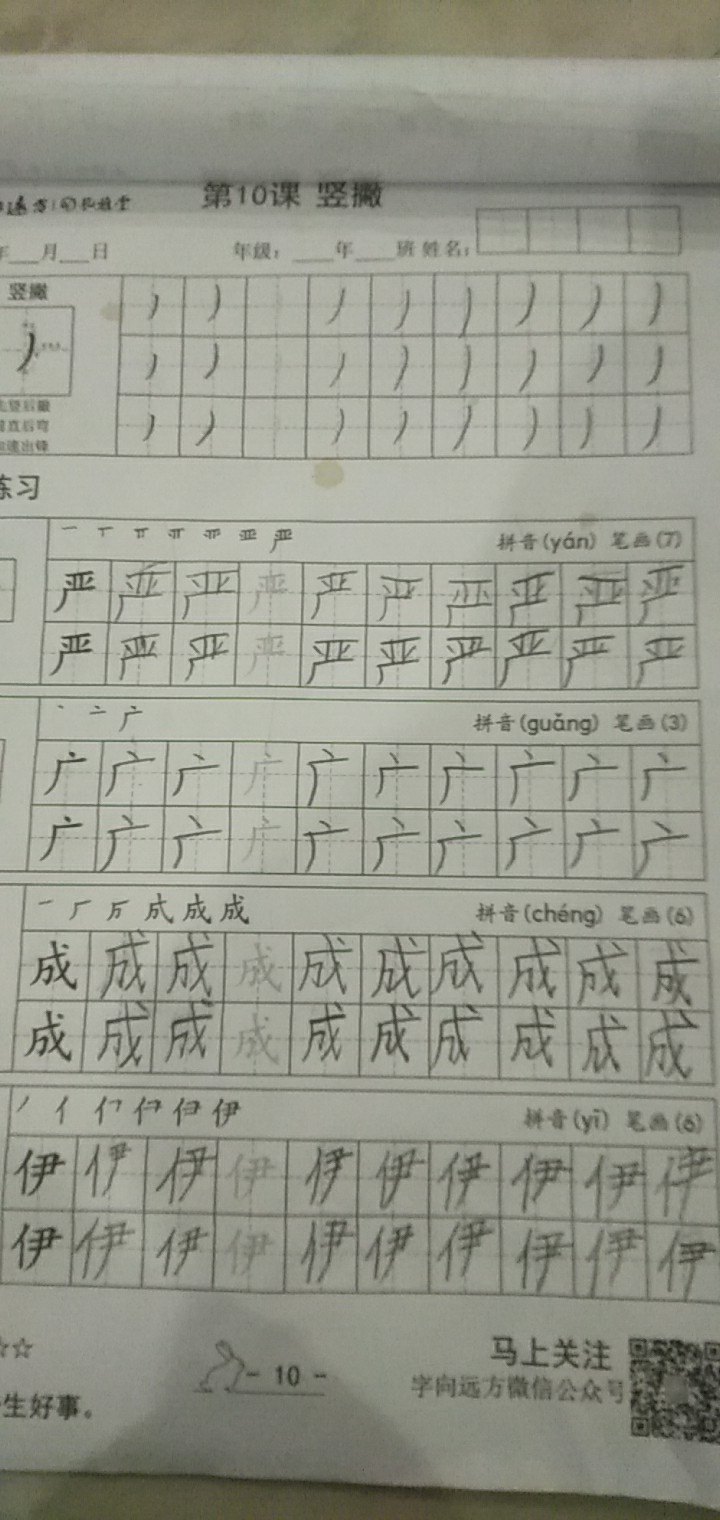 第10课 竖撇
年___月___日 年级：____年____班 姓名：
竖撇
丿 丿 丿 丿 丿 丿 丿 丿
丿 丿 丿 丿 丿 丿 丿 丿
丿 丿 丿 丿 丿 丿 丿 丿
先竖后撇
竖直后弯
快速出锋
练习
拼音(yán) 笔画(7)
严 严 严 严 严 严 严 严 严 严
严 严 严 严 严 严 严 严 严 严
丶 亠 广 拼音(guǎng) 笔画(3)
广 广 广 广 广 广 广 广 广 广
广 广 广 广 广 广 广 广 广 广
成 成 拼音(chéng) 笔画(6)
成 成 成 成 成 成 成 成 成 成
成 成 成 成 成 成 成 成 成 成
伊 拼音(yī) 笔画(6)
伊 伊 伊 伊 伊 伊 伊 伊 伊 伊
伊 伊 伊 伊 伊 伊 伊 伊 伊 伊
☆☆
生好事。
- 10 -
马上关注
字向远方微信公众号